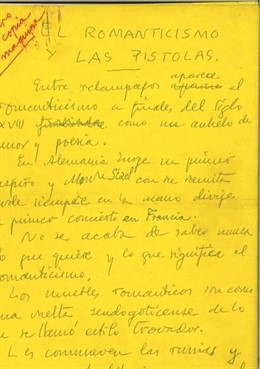 no
copia
maquina
EL ROMANTICISMO
Y LAS PISTOLAS.
aparece
Entre relampagos el
romanticismo a finales del siglo
XVIII como un anhelo de
amor y poesia.
En Alemania surge un primer
y Mme Stael con su ramita
verde siempre en la mano dirige
primer concierto en Francia.
No se acaba de saber nunca
lo que quiere y lo que significa el
romanticismo.
Los muebles romanticos son como
una mezcla seudogoticense de lo
que se llamó estilo trovador.
Les conmueven las ruinas y